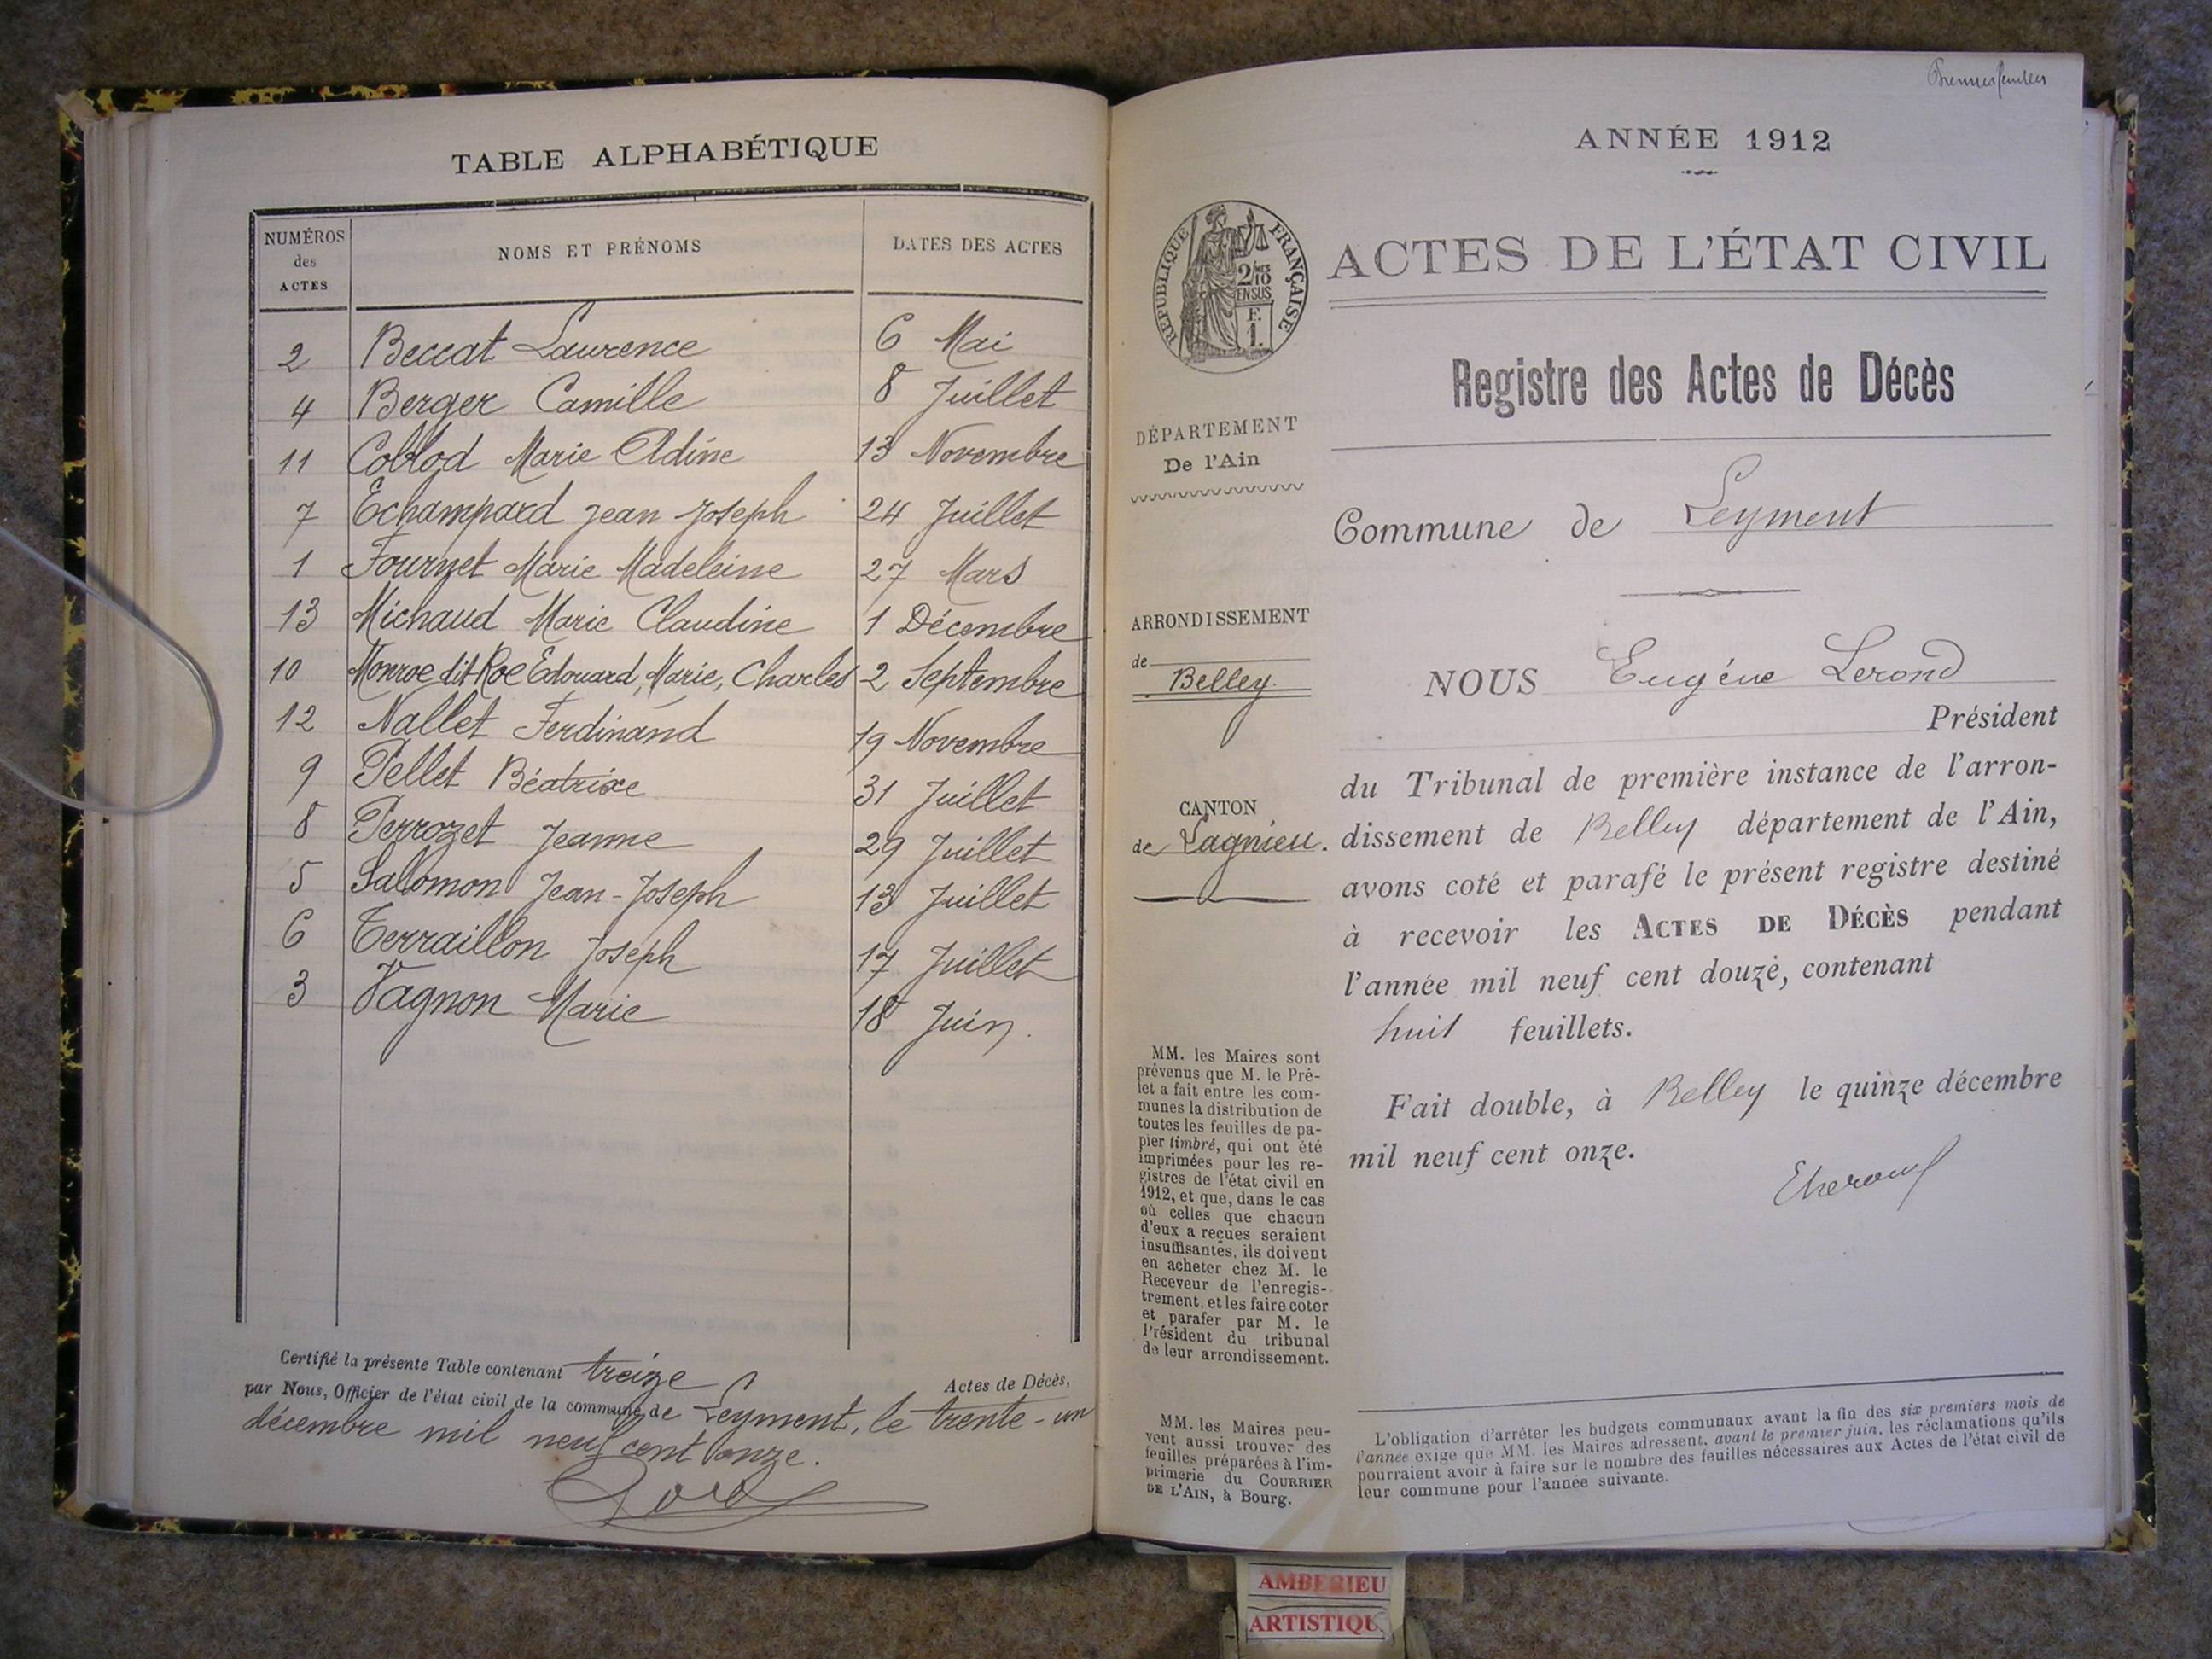 TABLE ALPHABÉTIQUE
NUMÉROS
des
ACTES
NOMS ET PRÉNOMS
DATES DES ACTES
2 Beccat Laurence 6 Mai
4 Berger Camille 8 Juillet
11 Collod Marie Aldine 13 Novembre
7 Echampard Jean Joseph 24 Juillet
1 Fournet Marie Madeleine 27 Mars
13 Michaud Marie Claudine 1 Décembre
10 Monroe dit Roe Edouard, Marie, Charles 2 Septembre
12 Nallet Ferdinand 19 Novembre
9 Pellet Béatrixe 31 Juillet
8 Perrozet Jeanne 29 Juillet
5 Salomon Jean-Joseph 13 Juillet
6 Terraillon Joseph 17 Juillet
3 Vagnon Marie 18 Juin.
Certifié la présente Table contenant treize Actes de Décès,
par Nous, Officier de l'état civil de la commune de Leyment, le trente-un
décembre mil neuf cent onze.
Premier feuillet
ANNÉE 1912
RÉPUBLIQUE FRANÇAISE
2/10
EN SUS
F.
1.
ACTES DE L'ÉTAT CIVIL
Registre des Actes de Décès
DÉPARTEMENT
De l'Ain
Commune de Leyment
ARRONDISSEMENT
de
Belley.
CANTON
de Lagnieu.
NOUS Eugéne Lerond
Président
du Tribunal de première instance de l'arron-
dissement de Belley département de l'Ain,
avons coté et parafé le présent registre destiné
à recevoir les ACTES DE DÉCÈS pendant
l'année mil neuf cent douze, contenant
huit feuillets.
Fait double, à Belley le quinze décembre
mil neuf cent onze.
MM. les Maires sont
prévenus que M. le Pré-
fet a fait entre les com-
munes la distribution de
toutes les feuilles de pa-
pier timbré, qui ont été
imprimées pour les re-
gistres de l'état civil en
1912, et que, dans le cas
où celles que chacun
d'eux a reçues seraient
insuffisantes, ils doivent
en acheter chez M. le
Receveur de l'enregis-
trement, et les faire coter
et parafer par M. le
Président du tribunal
de leur arrondissement.
MM. les Maires peu-
vent aussi trouver des
feuilles préparées à l'im-
primerie du COURRIER
DE L'AIN, à Bourg.
L'obligation d'arrêter les budgets communaux avant la fin des six premiers mois de
l'année exige que MM. les Maires adressent, avant le premier juin, les réclamations qu'ils
pourraient avoir à faire sur le nombre des feuilles nécessaires aux Actes de l'état civil de
leur commune pour l'année suivante.
AMBERIEU
ARTISTIQU